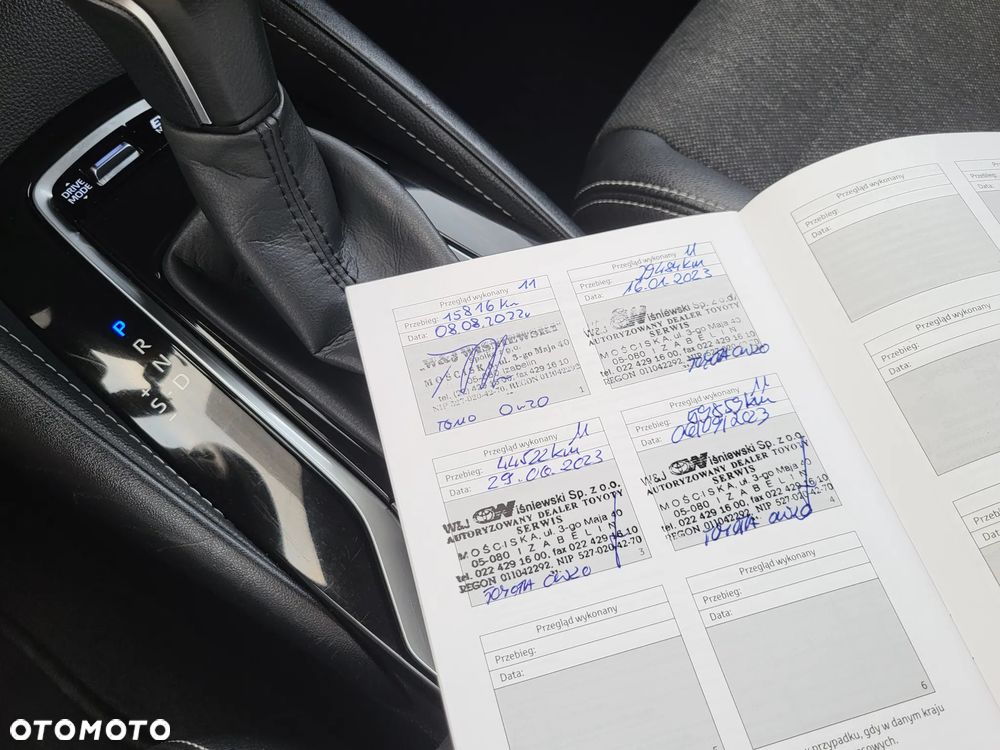 DRIVE
MODE
P
R
N
D
+
-
S
Przegląd wykonany 11
Przebieg: 15816 km
Data: 08.08.2022r
"W&J WIŚNIEWSKI"
MOŚCISKA, ul. 3-go Maja 40
NIP 527-020-42-70, REGON 011042292
TOMO 0W20
1
Przegląd wykonany 11
Przebieg:
Data: 16.01.2023
W&J Wiśniewski Sp. z o.o.
AUTORYZOWANY DEALER TOYOTY
SERWIS
MOŚCISKA, ul. 3-go Maja 40
05-080 IZABELIN
tel. 022 429 16 00, fax 022 429 16 10
REGON 011042292, NIP 527-020-42-70
TOYOTA 0W20
Przegląd wykonany 11
Przebieg: 44522 km
Data: 29.06.2023
W&J Wiśniewski Sp. z o.o.
AUTORYZOWANY DEALER TOYOTY
SERWIS
MOŚCISKA, ul. 3-go Maja 40
05-080 IZABELIN
tel. 022 429 16 00, fax 022 429 16 10
REGON 011042292, NIP 527-020-42-70
TOYOTA 0W20
3
Przegląd wykonany 11
Przebieg:
Data:
W&J Wiśniewski Sp. z o.o.
AUTORYZOWANY DEALER TOYOTY
SERWIS
MOŚCISKA, ul. 3-go Maja 40
05-080 IZABELIN
tel. 022 429 16 00, fax 022 429 16 10
REGON 011042292, NIP 527-020-42-70
TOYOTA 0W20
4
Przegląd wykonany
Przebieg:
Data:
Przegląd wykonany
Przebieg:
Data:
6
przypadku, gdy w danym kraju
Przegląd wykonany
Przebieg:
Data:
Przebieg:
Data:
Przegląd wykonany
Przebieg:
Data:
Przebieg:
Data:
OTOMOTO